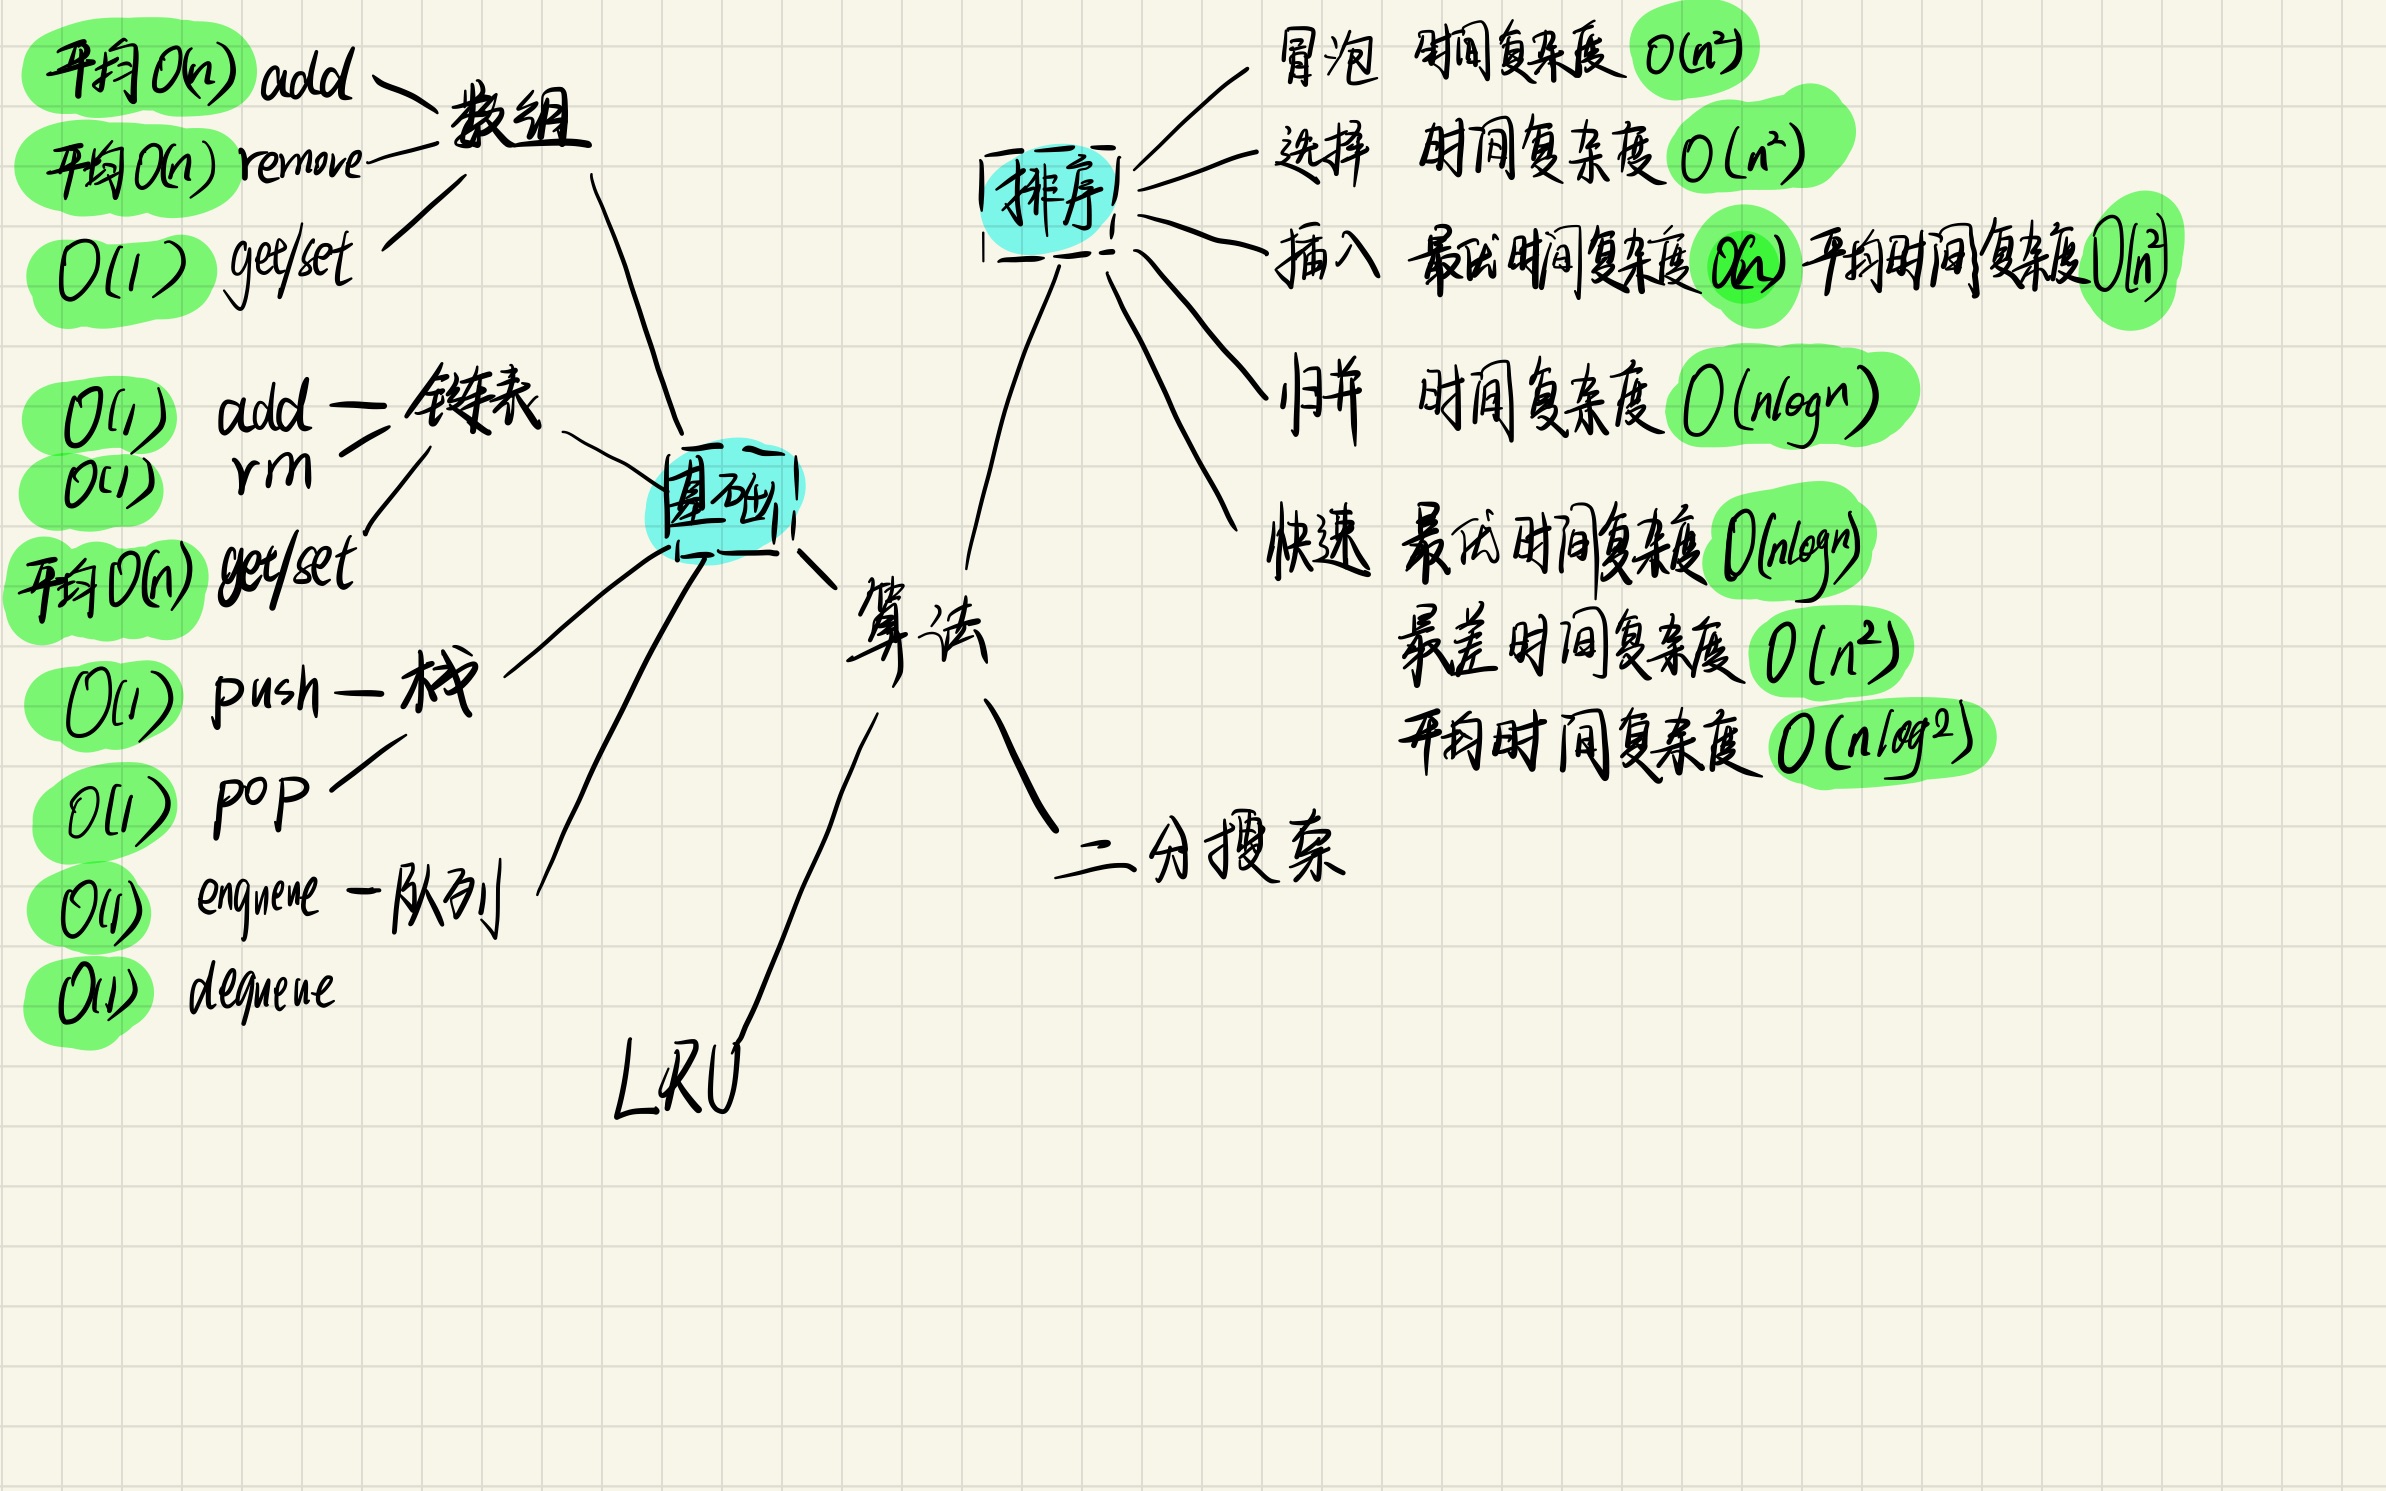 平均O(n) add
数组
平均O(n) remove
O(1) get/set
O(1) add
链表
O(1) rm
平均O(n) get/set
O(1) push
栈
O(1) pop
O(1) enqueue
队列
O(1) dequeue
基础
算法
LRU
二分搜索
排序
冒泡 时间复杂度 O(n²)
选择 时间复杂度 O(n²)
插入 最优时间复杂度 O(n) 平均时间复杂度 O(n²)
归并 时间复杂度 O(nlogn)
快速 最优时间复杂度 O(nlogn)
最差时间复杂度 O(n²)
平均时间复杂度 O(nlog2)